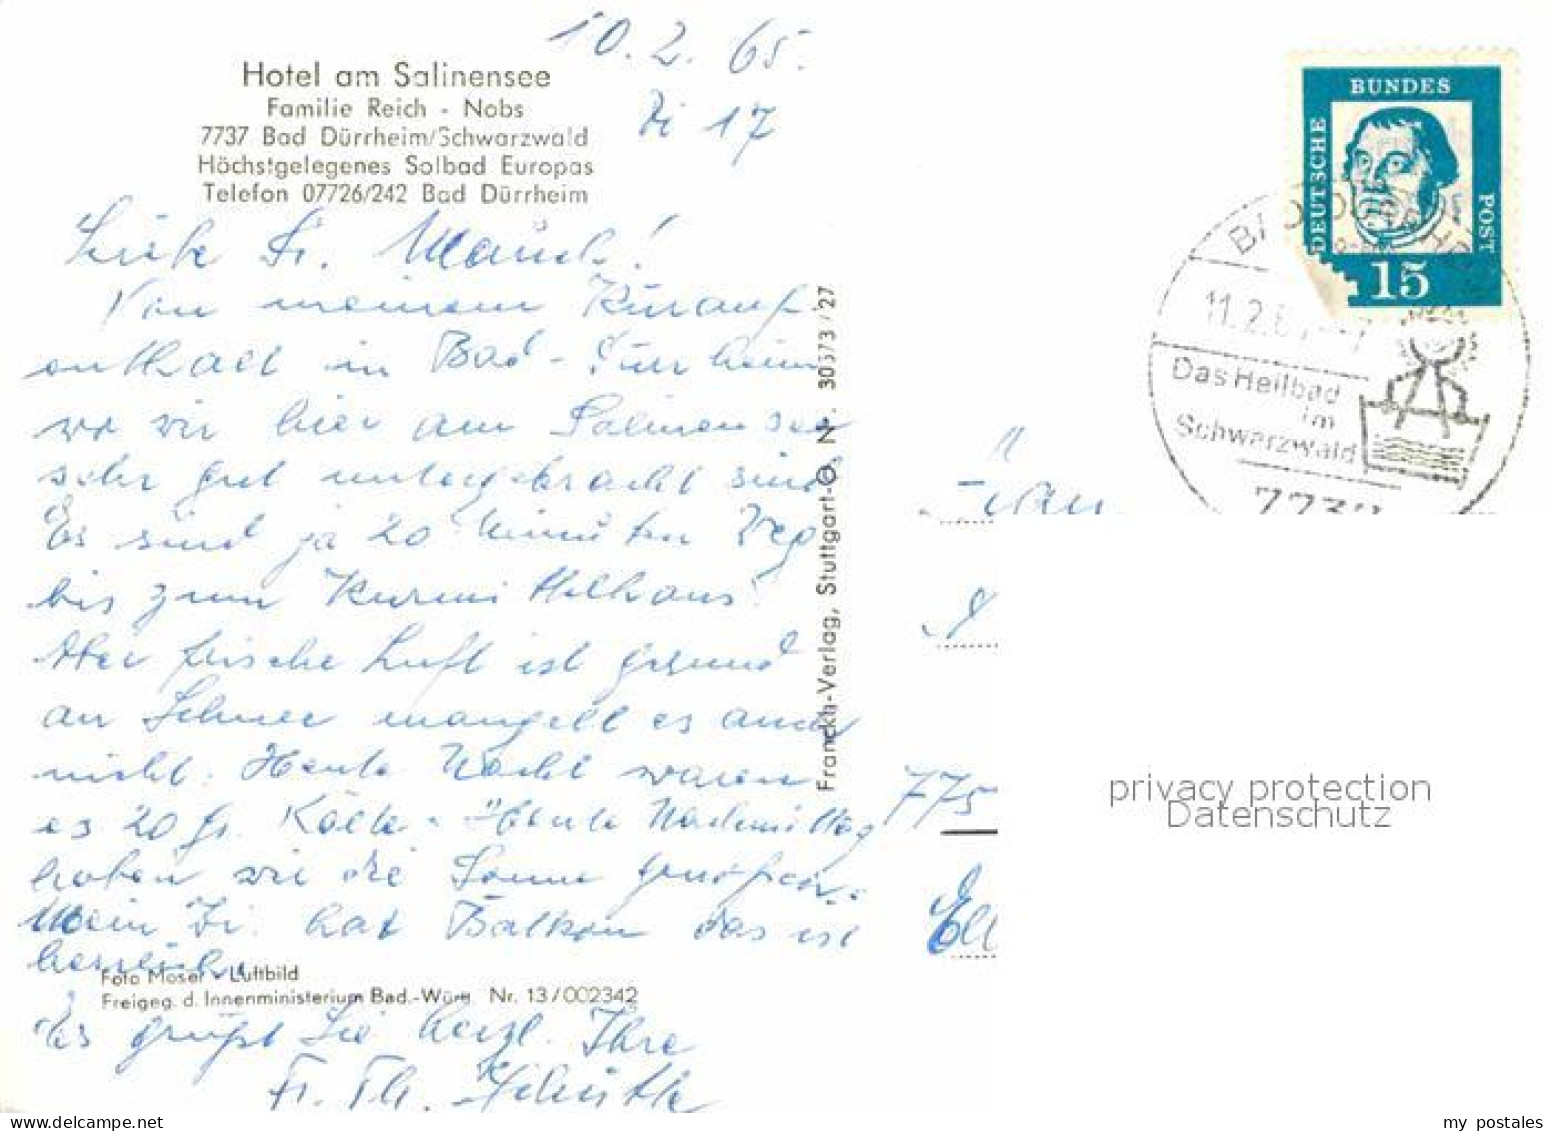 10.2.65.
Zi 17
Hotel am Salinensee
Familie Reich - Nobs
7737 Bad Dürrheim/Schwarzwald
Höchstgelegenes Solbad Europas
Telefon 07726/242 Bad Dürrheim
Liebe Fr.
Von meinem Kurauf-
enthalt in Bad-Dürrheim
wo wir hier am Salinensee
sehr gut untergebracht sind
Es sind ja 20 Minuten Weg
bis zum Kurmittelhaus!
Aber frische Luft ist gesund
an Schnee mangelt es auch
nicht. Heute Nacht waren
es 20 Gr. Kälte. Heute Nachmittag
haben wir die Sonne genossen.
Mein Zi. hat Balkon das ist
herrlich.
Foto Moser - Luftbild
Freigeg. d. Innenministerium Bad.-Württ. Nr. 13/002342
Es grüßt Sie herzl. Ihre
Fr. Th.
Franckh-Verlag, Stuttgart-O, Nr. 30573/27
DEUTSCHE
BUNDES
POST
15
11.2.6
Das Heilbad
im
Schwarzwald
Frau
775
Ell
privacy protection
Datenschutz
www.delcampe.net
my_postales